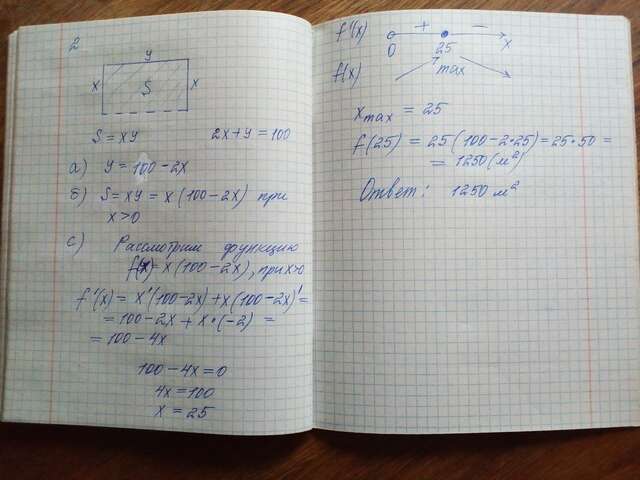 2
y
x S x
S = xy 2x + y = 100
а) y = 100 - 2x
б) S = xy = x (100 - 2x) при
x > 0
с) Рассмотрим функцию
f(x) = x (100 - 2x), при x>0
f'(x) = x'(100 - 2x) + x(100 - 2x)' =
= 100 - 2x + x • (-2) =
= 100 - 4x
100 - 4x = 0
4x = 100
x = 25
f'(x) + -
0 25 x
f(x) max
xmax = 25
f(25) = 25 (100 - 2•25) = 25 • 50 =
= 1250 (м²)
Ответ: 1250 м²